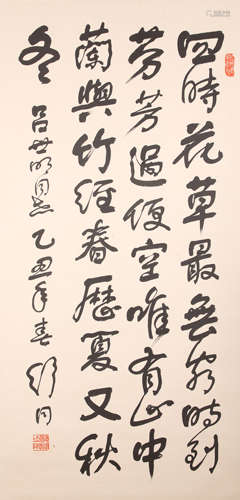 四時花草最無窮時到
芬芳過便空唯有山中
蘭與竹經春歷夏又秋
冬 呂世明同志 乙丑年春 舒同